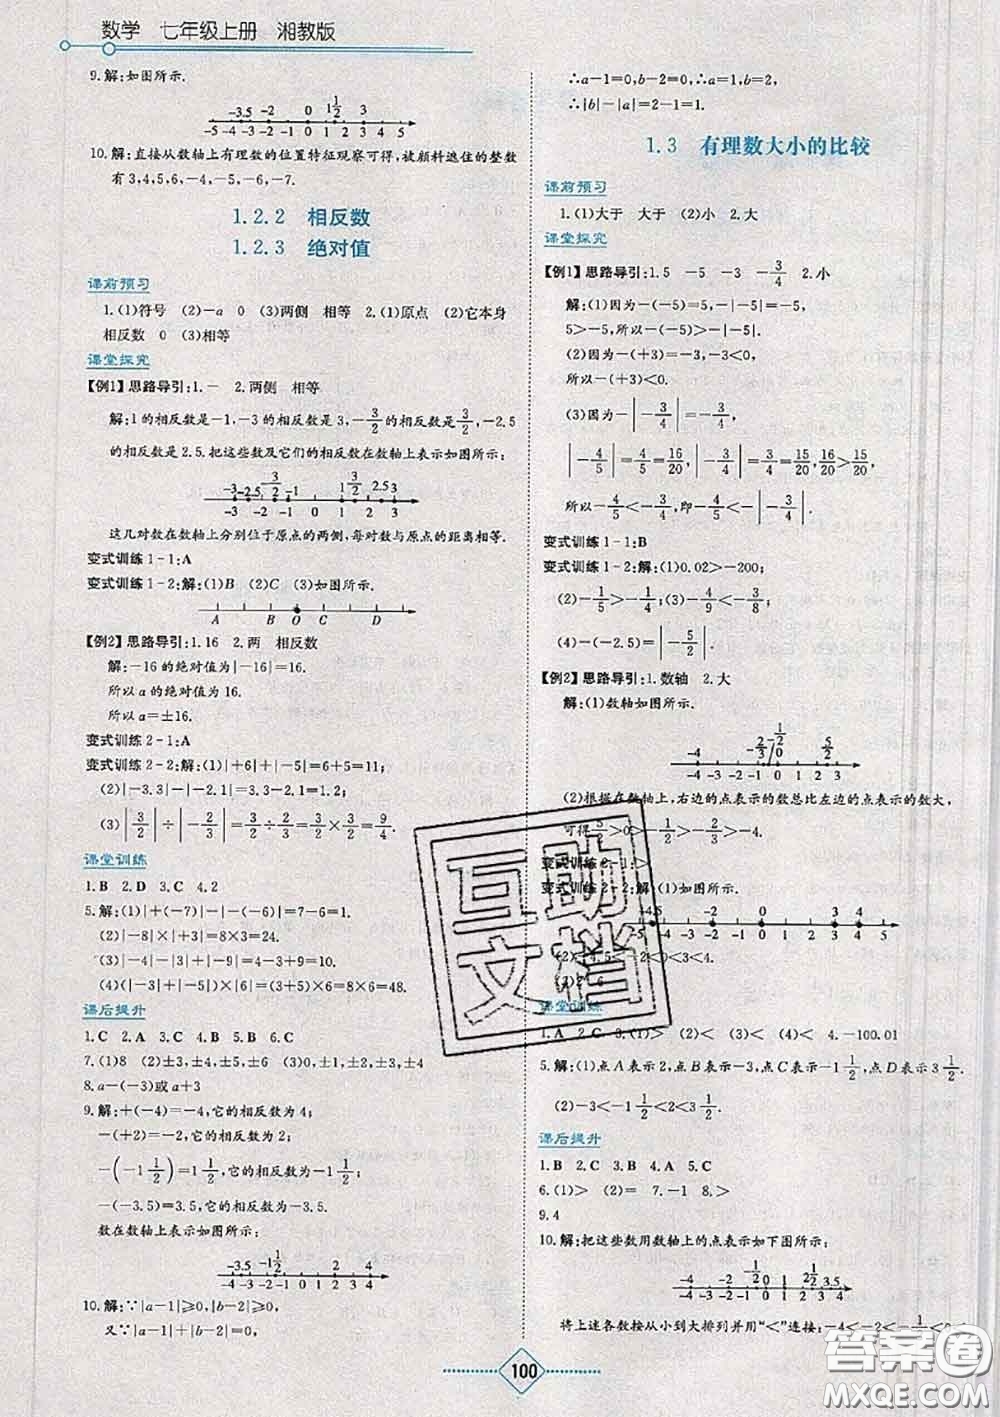 数学 七年级上册 湘教版
9.解:如图所示.
-3.5 -2 -1 0 1½ 3
-5 -4 -3 -2 -1 0 1 2 3 4 5
10.解:直接从数轴上有理数的位置特征观察可得,被颜料遮住的整数
有3,4,5,6,-4,-5,-6,-7.
1.2.2 相反数
1.2.3 绝对值
课前预习
1.(1)符号 (2)-a 0 (3)两侧 相等 2.(1)原点 (2)它本身
相反数 0 (3)相等
课堂探究
【例1】思路导引:1.- 2.两侧 相等
解:1的相反数是-1,-3的相反数是3,-3/2的相反数是3/2,-2.5
的相反数是2.5.把这些数及它们的相反数在数轴上表示如图所示:
-3 -2.5 -3/2 -1 1 3/2 2.5 3
-4 -3 -2 -1 0 1 2 3 4
这几对数在数轴上分别位于原点的两侧,每对数与原点的距离相等.
变式训练1-1:A
变式训练1-2:解:(1)B (2)C (3)如图所示.
A B O C D
【例2】思路导引:1.16 2.两 相反数
解:-16的绝对值为|-16|=16.
所以a的绝对值为16.
所以a=±16.
变式训练2-1:A
变式训练2-2:解:(1)|+6|+|-5|=6+5=11;
(2)|-3.3|-|-2.1|=3.3-2.1=1.2;
(3)|3/2|÷|-2/3|=3/2÷2/3=3/2×3/2=9/4.
课堂训练
1.B 2.D 3.C 4.2
5.解:(1)|+(-7)|-|-6|=7-6=1.
(2)|-8|×|-3|=8×3=24.
(3)|-4|+|-1|+|-5|=4+1+5=10.
(4)|(-2)|×|-4|×|-6|=2×4×6=48.
课后提升
1.C 2.A 3.A 4.C 5.B 6.B
7.(1)8 (2)±3,±4,±5,±6 (3)0,±1,±2,±3,±4
8.a-(-3)或a+3
9.解:+(-4)=-4,它的相反数为4;
-(+2)=-2,它的相反数为2;
-(-1½)=1½,它的相反数为-1½;
-(-3.5)=3.5,它的相反数为-3.5.
数在数轴上表示如图所示:
-3.5 -1½
-4 -3 -2 -1 0 1 2 3 4
10.解:∵|a-1|≥0,|b-2|≥0,
又∵|a-1|+|b-2|=0,
∴a-1=0,b-2=0,∴a=1,b=2,
∴|b|-|a|=2-1=1.
1.3 有理数大小的比较
课前预习
1.(1)大于 大于 (2)小 2.大
课堂探究
【例1】思路导引:1.5 -5 -3 -3/4 2.小
解:(1)因为-(-5)=5,-|-5|=-5,
5>-5,所以-(-5)>-|-5|.
(2)因为-(+3)=-3,-3<0,
所以-(+3)<0.
(3)因为-|-3/4|=-3/4,
|-4/5|=4/5=16/20,|-3/4|=3/4=15/20,16/20>15/20,
所以-4/5<-3/4,即-4/5<-|-3/4|.
变式训练1-1:B
变式训练1-2:解:(1)0.02>-200;
(2)-1/5>-1/4;(3)-4/9<-3/8;
(4)-(-2.5)=|-5/2|.
【例2】思路导引:1.数轴 2.大
解:(1)数轴如图所示.
-4 -2/3 -1/2 0 5/2
-4 -3 -2 -1 0 1 2 3
(2)根据在数轴上,右边的点表示的数总比左边的点表示的数大,
可得5/2>0>-1/2>-2/3>-4.
变式训练2-1:>
变式训练2-2:解:(1)如图所示.
-4.5 -2 0 3 4
-5 -4 -3 -2 -1 0 1 2 3 4 5
课堂训练
1.A 2.C 3.(1)> (2)< (3)< (4)< 4.-100.01
5.解:(1)点A表示2,点B表示-3,点C表示-1½,点D表示3½.
(2)-3<-1½<2<3½.
课后提升
1.B 2.C 3.B 4.A 5.C
6.(1)> (2)= 7.-1 8.>
9.4
10.解:把这些数用数轴上的点表示如下图所示:
-4 -3 -2 -1 0 1 2 3 4
将上述各数按从小到大排列并用“<”连接:
100
互助文档
答案圈
MXQE.COM